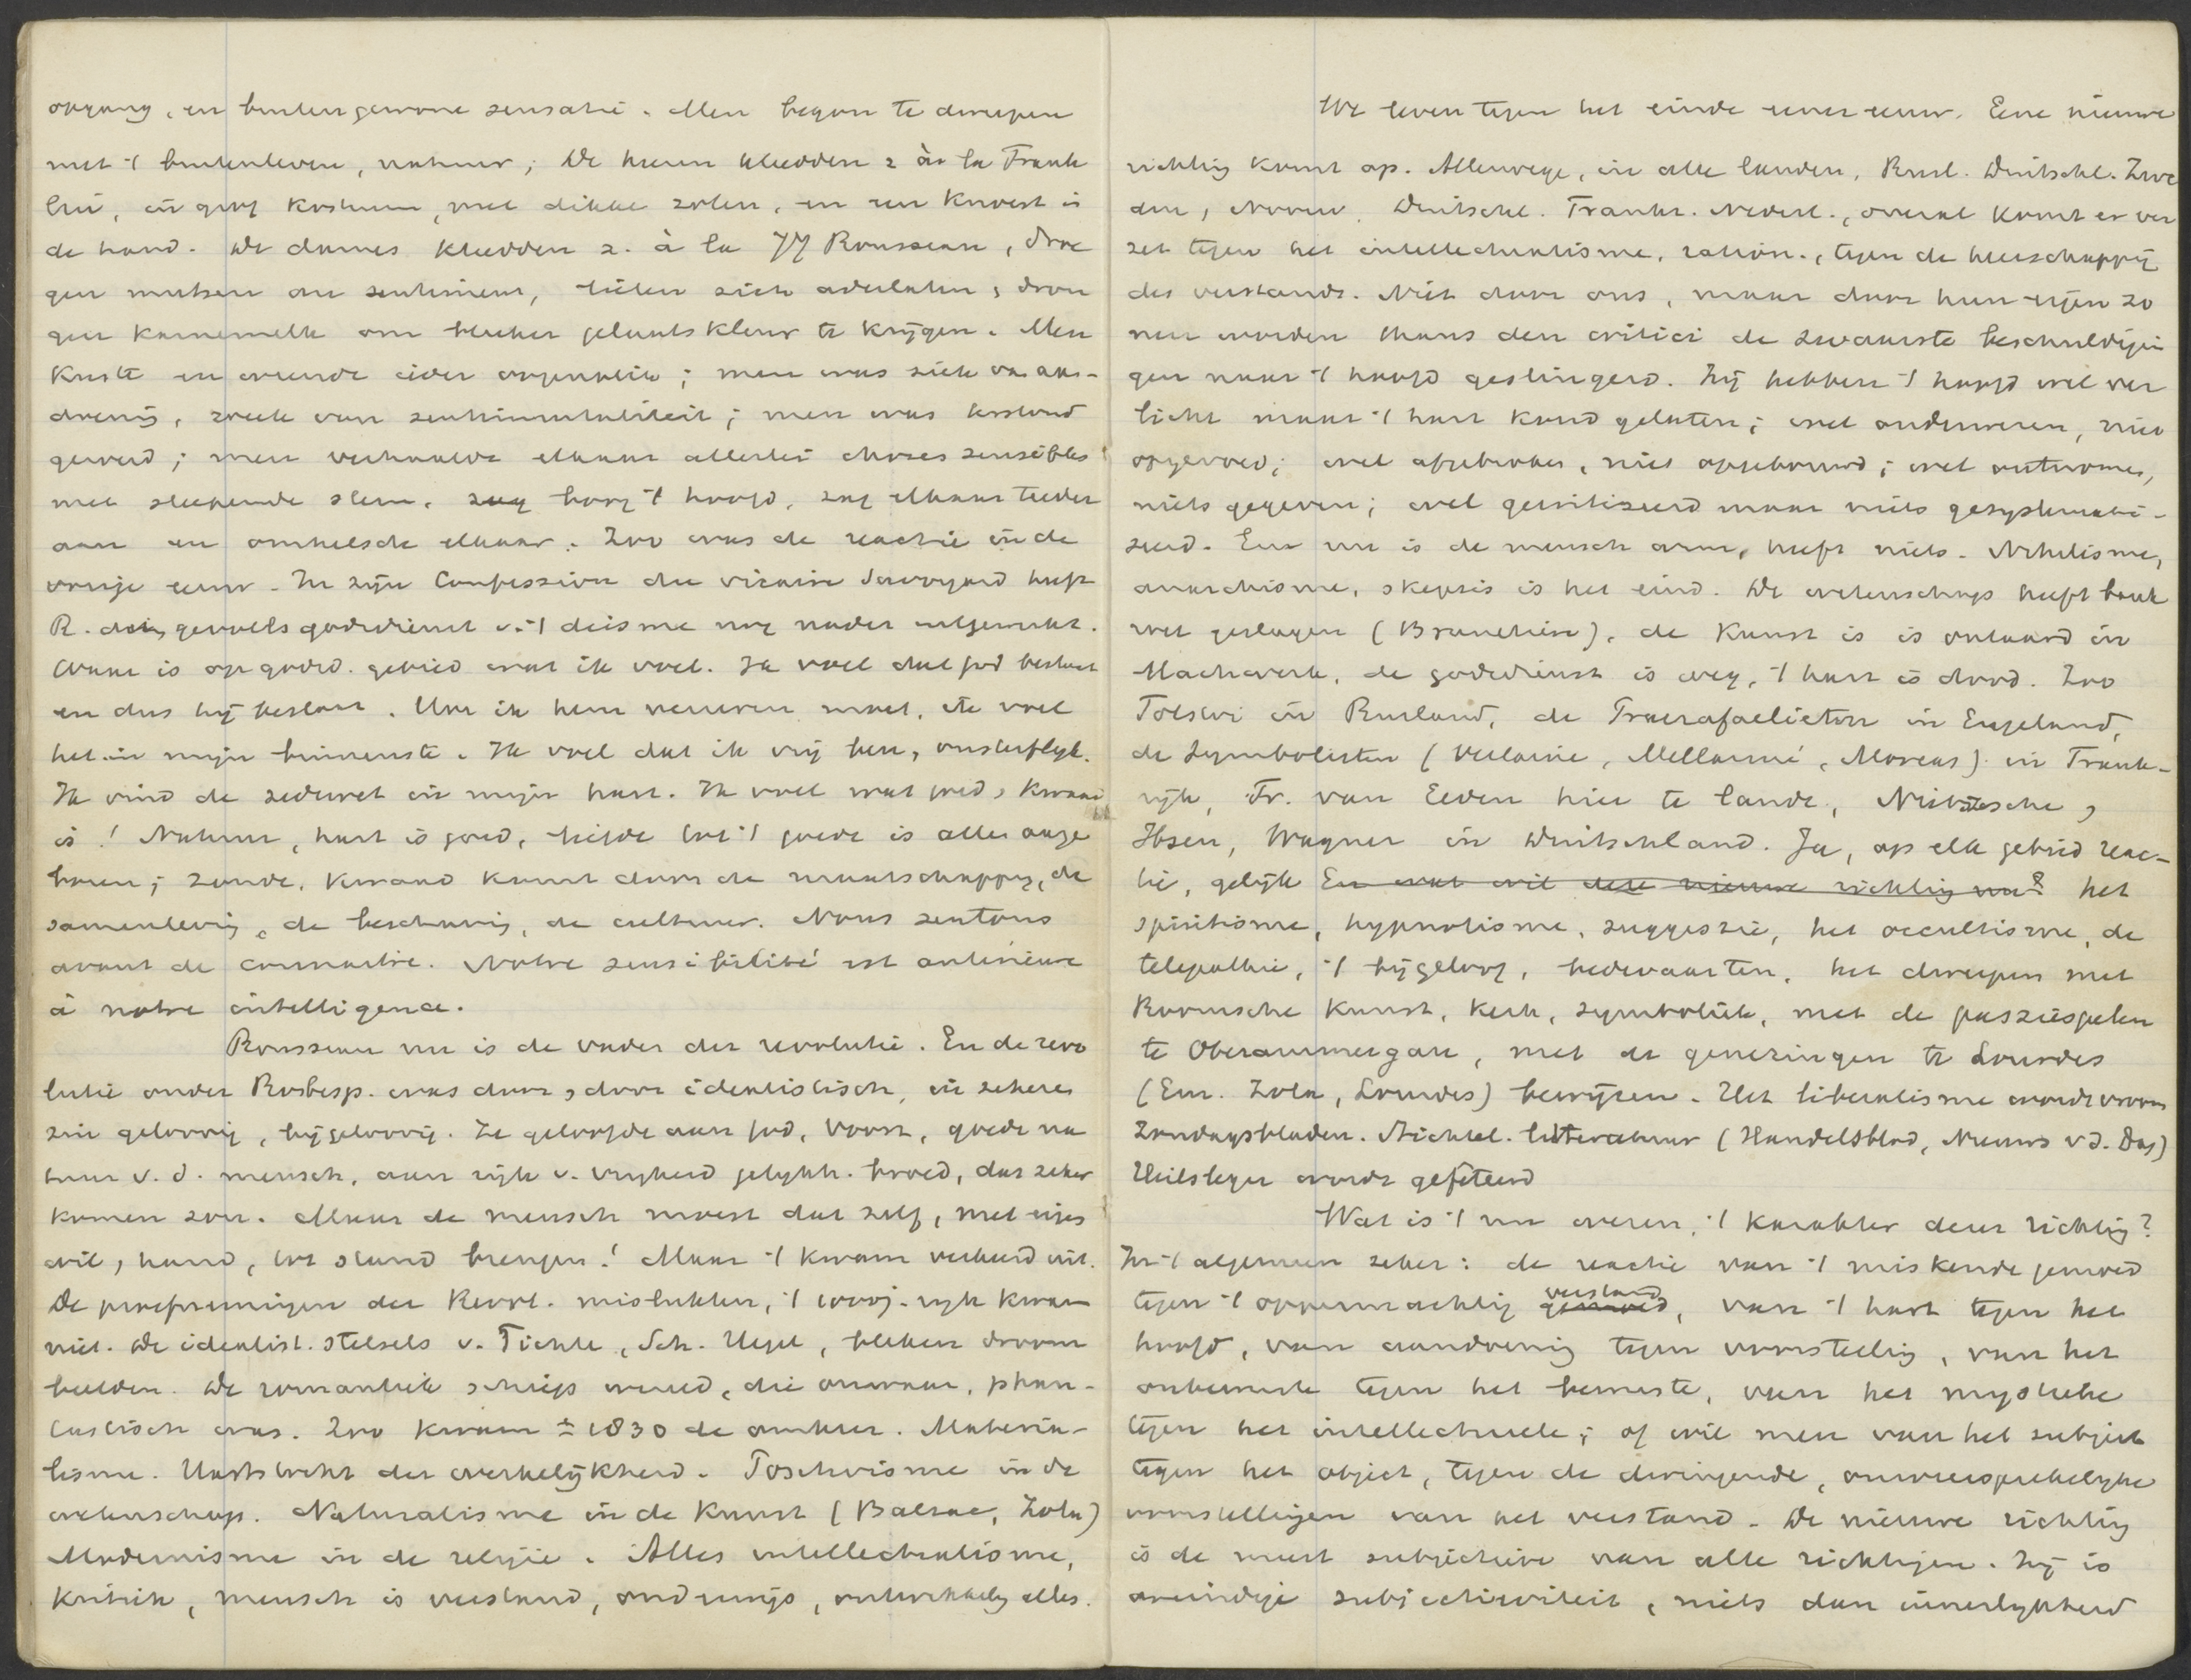 opgang, en buitengewone sensatie. Men begon te dweepen
met 't buitenleven, natuur; De heeren kleedden z à la Frank
lin, in grof kostuum, met dikke zolen, en een knoest in
de hand. De dames kleedden z. à la JJ Rousseau, droe
gen mutsen au sentiment, lieten zich aderlaten, dron
gen karnemelk om bleeker gelaatskleur te krijgen. Men
kuste en weende ieder oogenblik; men was ziek van aan-
doening, week van sentimentaliteit; men was
geroerd; men verhaalde elkaar allerlei choses sensibles
met sleepende stem, boog 't hoofd, zag elkaar teeder
aan en omhelsde elkaar. Zoo was de reactie in de
vorige eeuw. In zijn Confession du vicaire Savoyard heeft
R. deze gevoelsgodsdienst v. 't deisme nog nader uitgewerkt.
Waar is op godsd. gebied wat ik voel. Ik voel dat God bestaat
en dus hij bestaat. Hoe ik hem vereeren moet, ik voel
het in mijn binnenste. Ik voel dat ik vrij ben, onsterflijk.
Ik vind de zedewet in mijn hart. Ik voel wat goed, kwaad
is! Natuur, hart is goed, liefde tot 't goede is allen ange
boren; zonde, kwaad komt door de maatschappij, de
samenleving, de beschaving, de cultuur. Nous sentons
avant de connaitre. Notre sensibilité est antérieure
à notre intelligence.
Rousseau nu is de vader der revolutie. En de revo
lutie onder Robesp. was door en door idealistisch, in zekeren
zin geloovig, bijgeloovig. Ze geloofde aan God, voorz., goede na
tuur v. d. mensch, aan rijk v. vrijheid gelijkh. broed, dat zeker
komen zou. Maar de mensch moest dat zelf, met eigen
wil, hand, tot stand brengen! Maar 't kwam verkeerd uit.
De proefnemingen der Revol. mislukten, 't 1000j. rijk kwam
niet. De idealist. stelsels v. Fichte, Sch. Hegel, bleken droom
beelden. De romantiek schiep wereld, die onwaar, phan-
tastisch was. Zoo kwam ± 1830 de omkeer. Materia-
lisme. Hartstocht der werkelijkheid. Positivisme in de
wetenschap. Naturalisme in de kunst (Balzac, Zola)
Modernisme in de religie. Alles intellectualisme,
kritiek, mensch is verstand, onderwijs, ontwikkeling alles.
We leven tegen het einde eener eeuw. Eene nieuwe
richting komt op. Allerwege, in alle landen, Rusl. Duitschl. Zwe
den, Noorw. Duitschl. Frankr. Nederl., overal komt er ver
zet tegen het intellectualisme, ration., tegen de heerschappij
des verstands. Niet door ons, maar door hun eigen zo
nen worden thans den critici de zwaarste beschuldigin
gen naar 't hoofd geslingerd. Zij hebben 't hoofd wel ver
licht maar 't hart koud gelaten; wel onderwezen, niet
opgevoed; wel afgebroken, niet opgebouwd; wel ontnomen,
niets gegeven; wel gekritiseerd maar niets gesystemati-
seerd. En nu is de mensch arm, heeft niets. Nihilisme,
anarchisme, skepsis is het eind. De wetenschap heeft bank
roet geslagen (Brunetière), de kunst is is ontaard in
Machwerk, de godsdienst is weg, 't hart is dood. Zoo
Tolstoi in Rusland, de Praerafaelieten in Engeland,
de Symbolisten (Verlaine, Mellarmé, Moreas) in Frank-
rijk, Fr. van Eeden hier te lande, Nietzsche,
Ibsen, Wagner in Duitschland. Ja, op elk gebied reac-
tie, gelijk En wat wil deze nieuwe richting nu? het
spiritisme, hypnotisme, suggestie, het occultisme, de
telepathie, 't bijgeloof, bedevaarten, het dweepen met
Roomsche kunst, kerk, symboliek, met de passiespelen
te Oberammergau, met de genezingen te Lourdes
(Em. Zola, Lourdes) bewijzen. Het liberalisme wordt vroom
Zondagsbladen. Stichtel. litteratuur (Handelsblad, Nieuws v d. Dag)
Heilsleger wordt gefêteerd
Wat is 't nu wezen, 't karakter dezer richting?
In 't algemeen zeker: de reactie van 't miskende gemoed
tegen 't oppermachtig gemoed verstand, van 't hart tegen het
hoofd, van aandoening tegen voorstelling, van het
onbewuste tegen het bewuste, van het mystieke
tegen het intellectueele; of wil men van het subject
tegen het object, tegen de dwingende, onweersprekelijke
voorstellingen van het verstand. De nieuwe richting
is de meest subjectieve van alle richtingen. Zij is
oneindige subjectiviteit, niets dan innerlijkheid